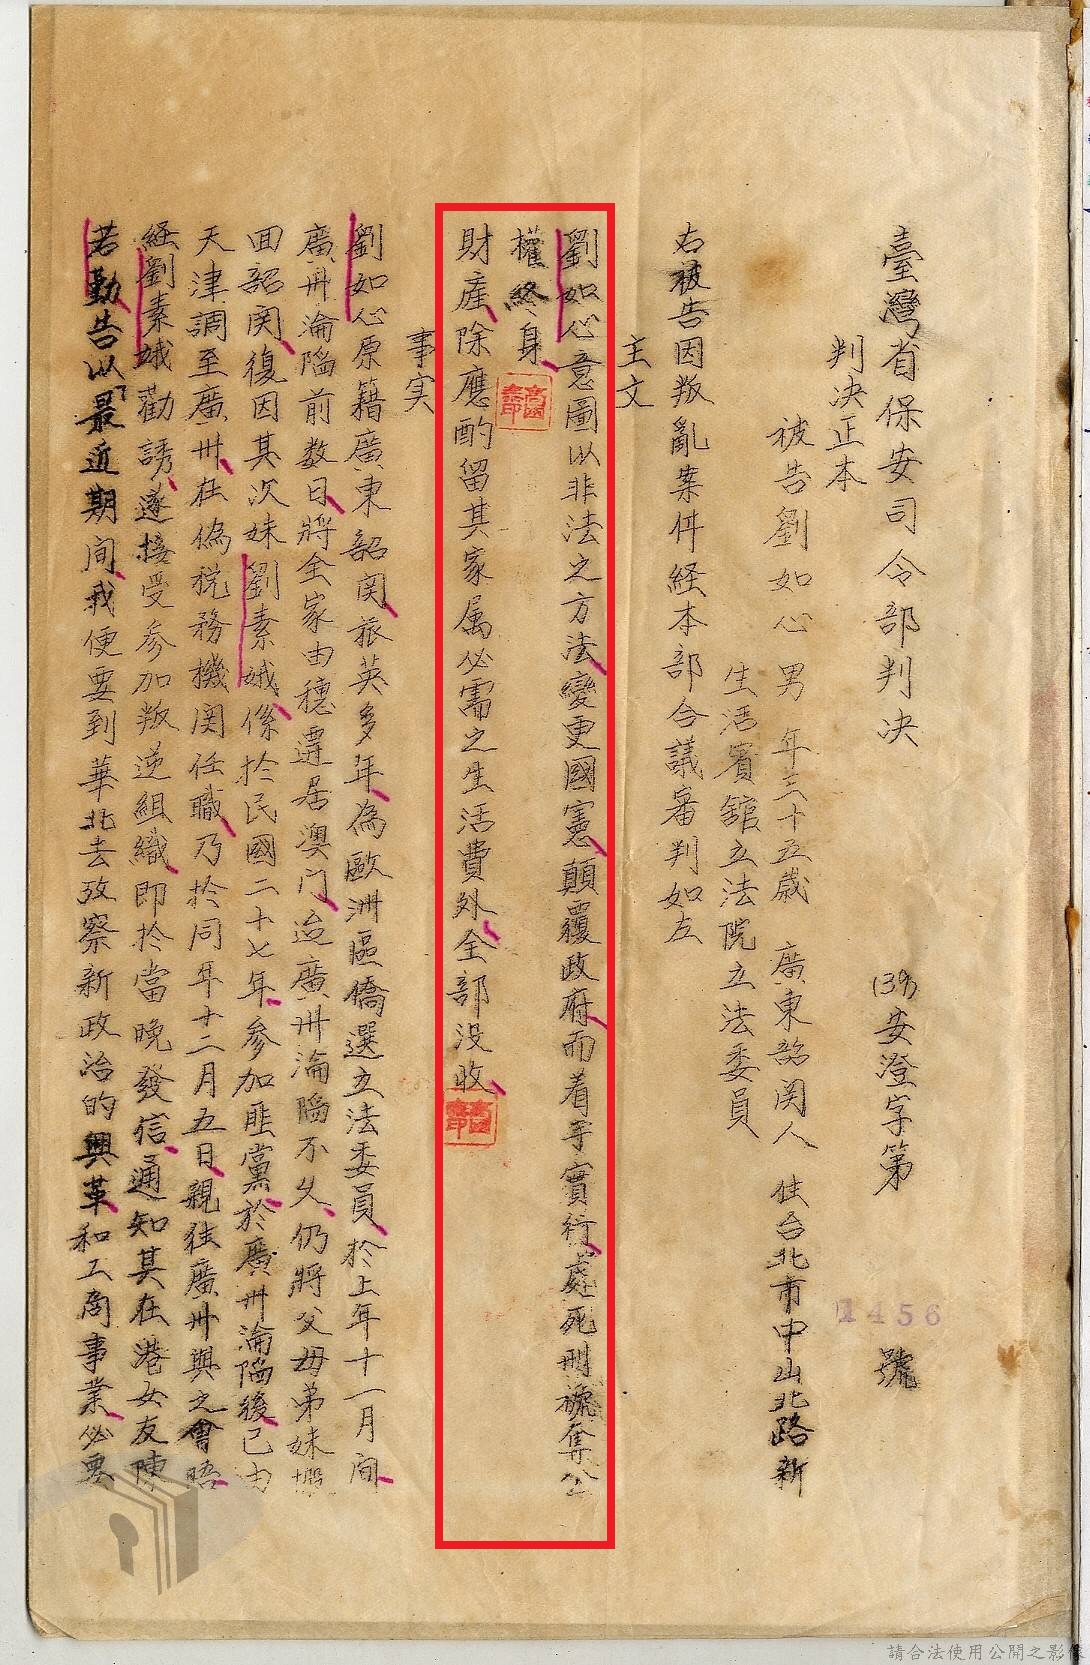 臺灣省保安司令部判决
(39)安澄字第
1456
號
判决正本
被告劉如心 男 年三十五歲 廣東韶関人 住台北市中山北路新
生活賓舘立法院立法委員
右被告因叛亂案件経本部合議審判如左
主文
劉如心意圖以非法之方法變更國憲顛覆政府而着手實行處死刑褫奪公
權終身
財産除應酌留其家属必需之生活費外全部没收
事实
劉如心原籍廣東韶関旅英多年為歐洲區僑選立法委員於上年十一月间
廣州淪陷前数日將全家由穗遷居澳门迨廣州淪陷不久仍將父母弟妹搬
回韶関復因其次妹劉素娥係於民國二十七年参加匪黨於廣州淪陷後已由
天津調至廣州在偽税務機関任職乃於同年十二月五日親往廣州與之會晤
経劉素娥勸誘遂接受参加叛逆組織即於當晚發信通知其在港女友陳
若勤告以「最近期间我便要到華北去攷察新政治的興革和工商事業必要
請合法使用公開之影像